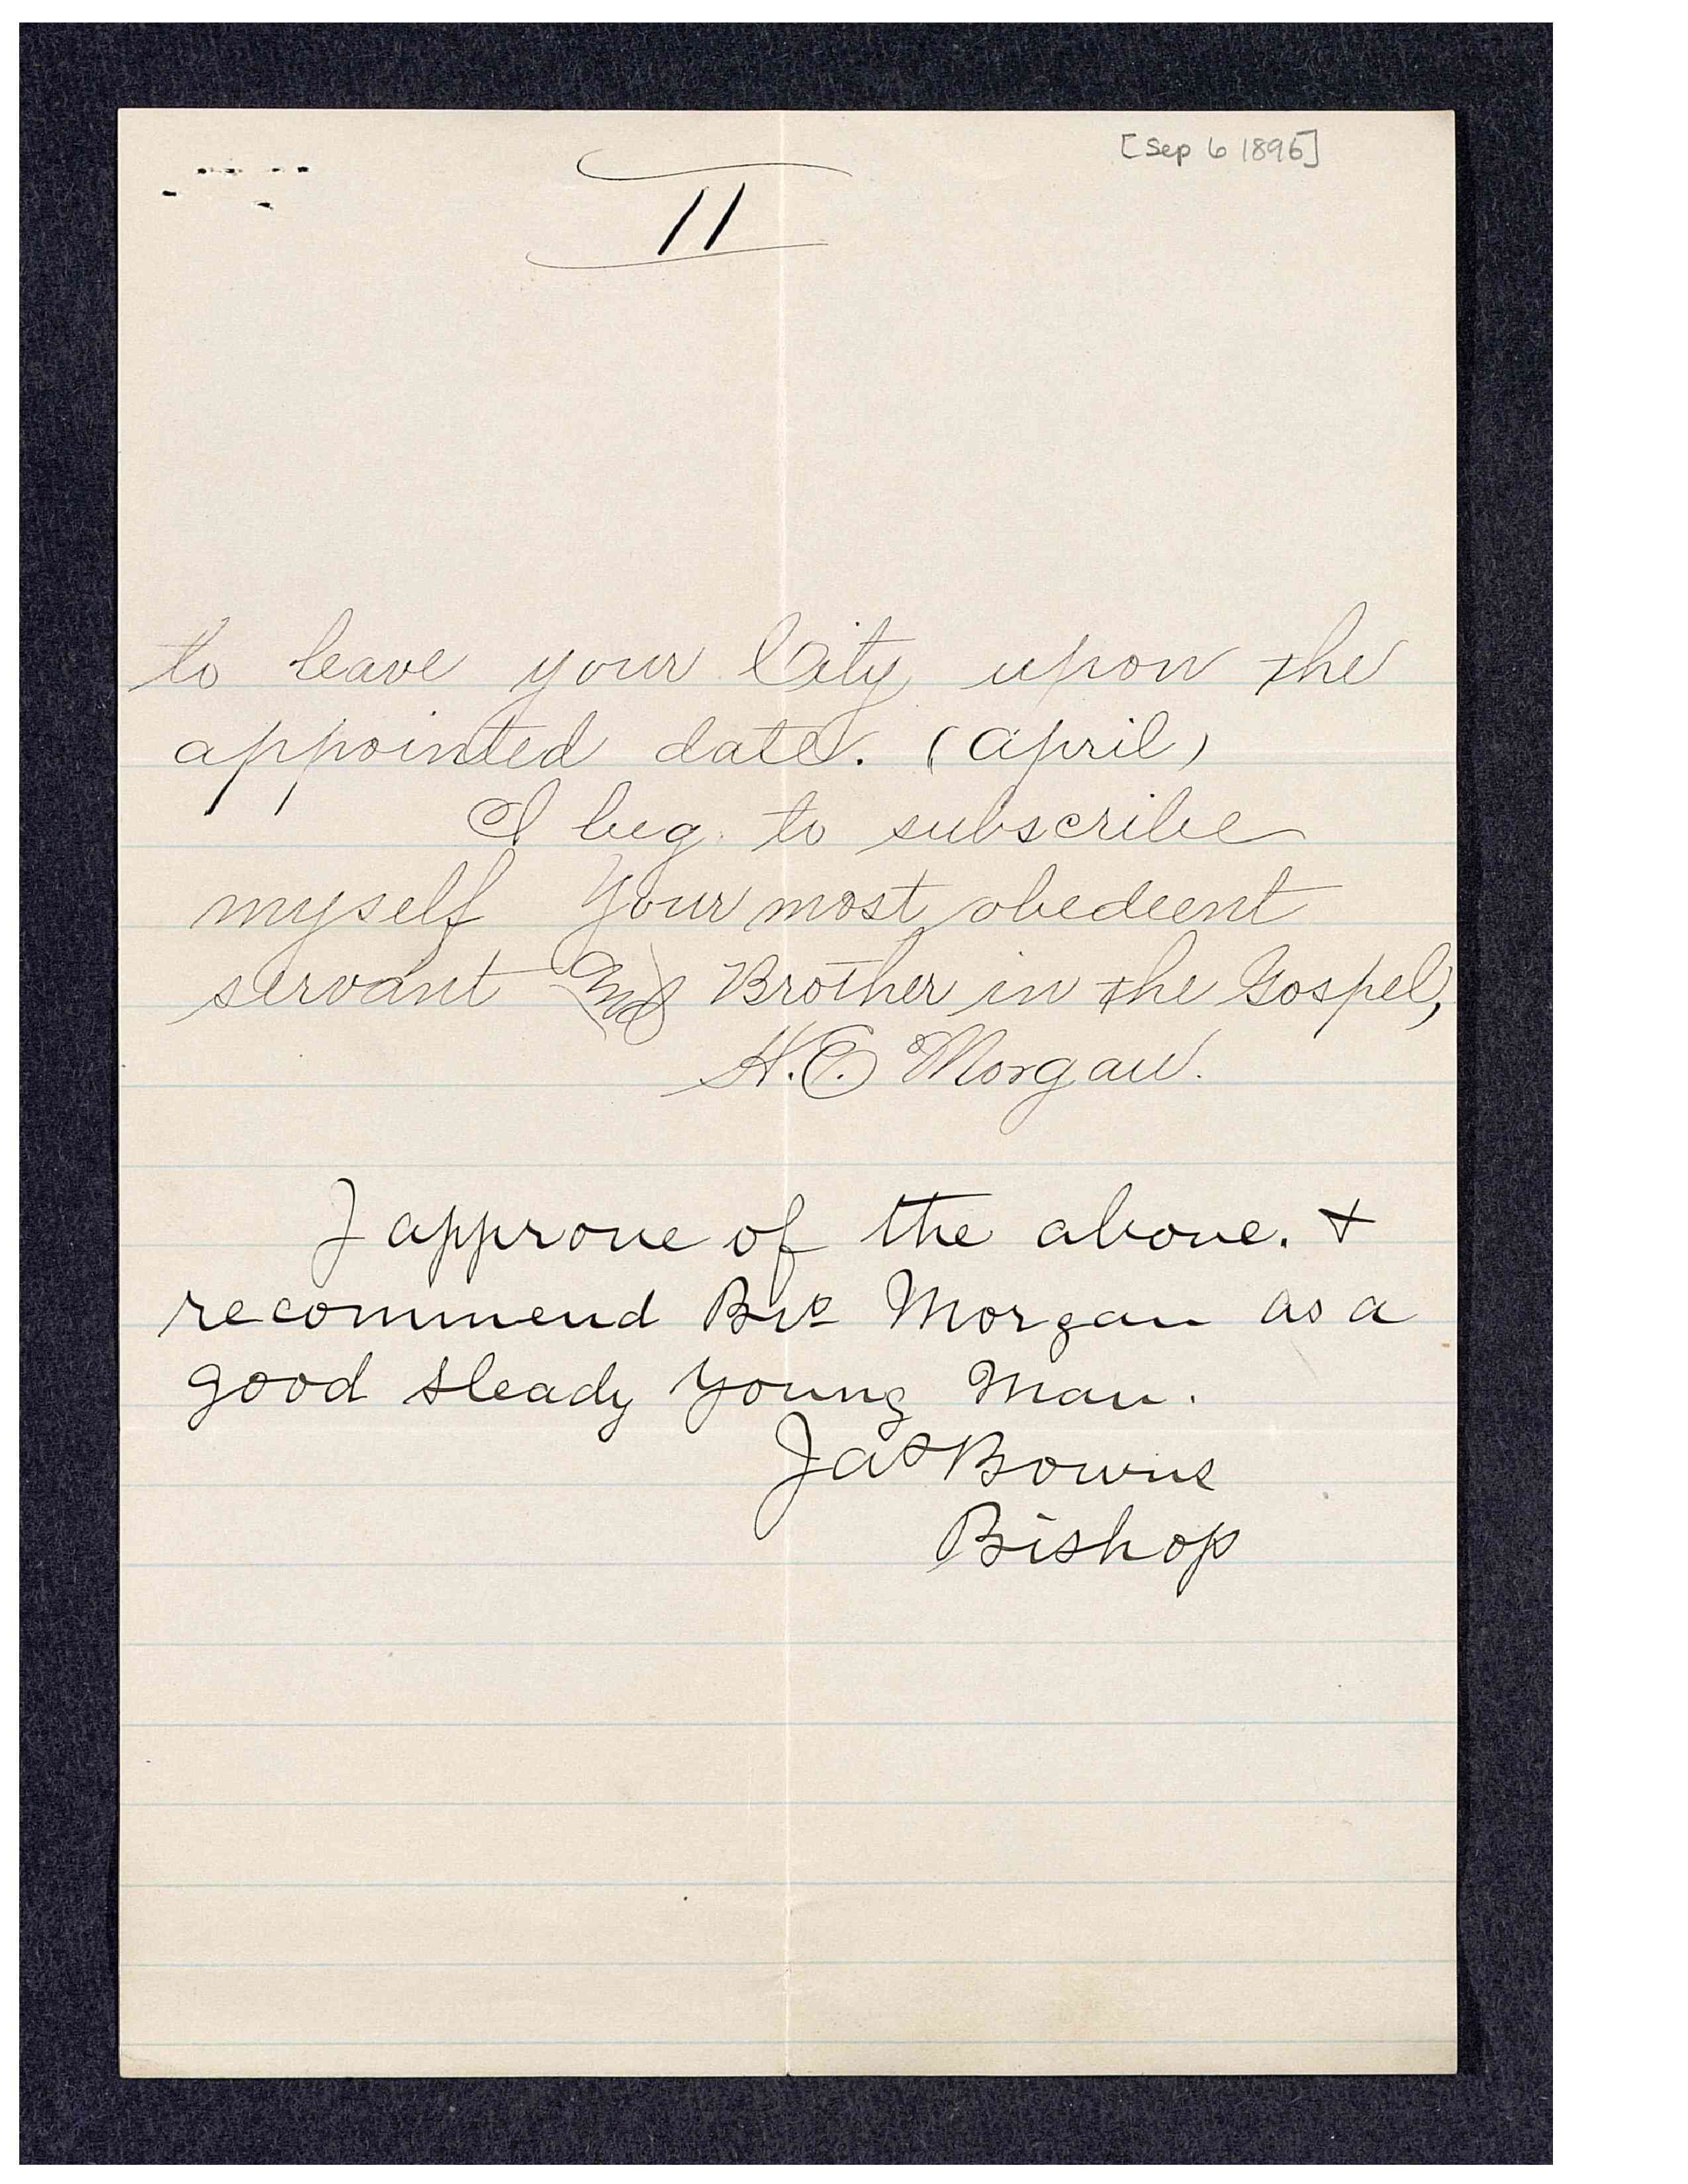 [Sep 6 1896]
II
to leave your City upon the
appointed date. (April)
I beg to subscribe
myself Your most obedient
servant And Brother in the Gospel,
H.E. Morgan.
I approve of the above. &
recommend Bro Morgan as a
good steady young Man.
Jas Bowns
Bishop